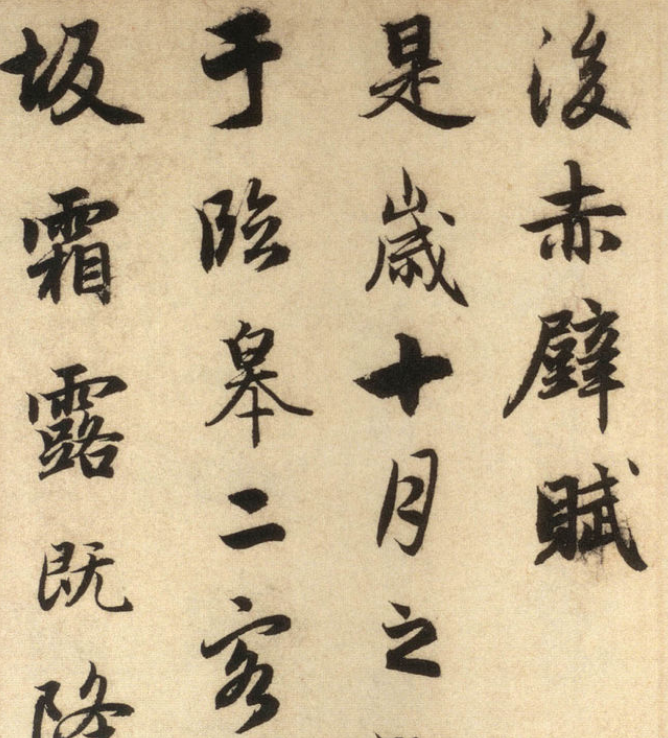 後赤壁賦
是歲十月之
于臨皋二客
坂霜露既降